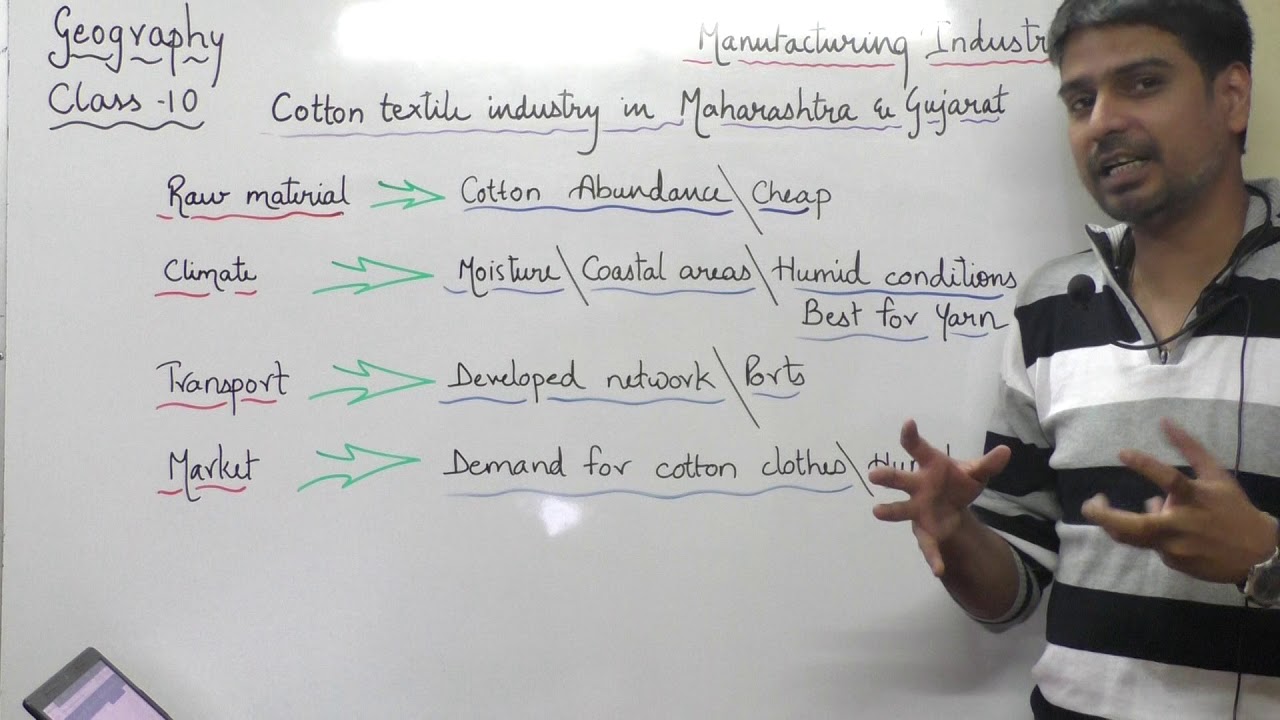 Geography
Manufacturing Industr
Class -10
Cotton textile industry in Maharashtra & Gujarat
Raw material Cotton Abundance \ Cheap
Climate Moisture \ Coastal areas \ Humid conditions
Best for Yarn
Transport Developed network \ Ports
Market Demand for cotton clothes \